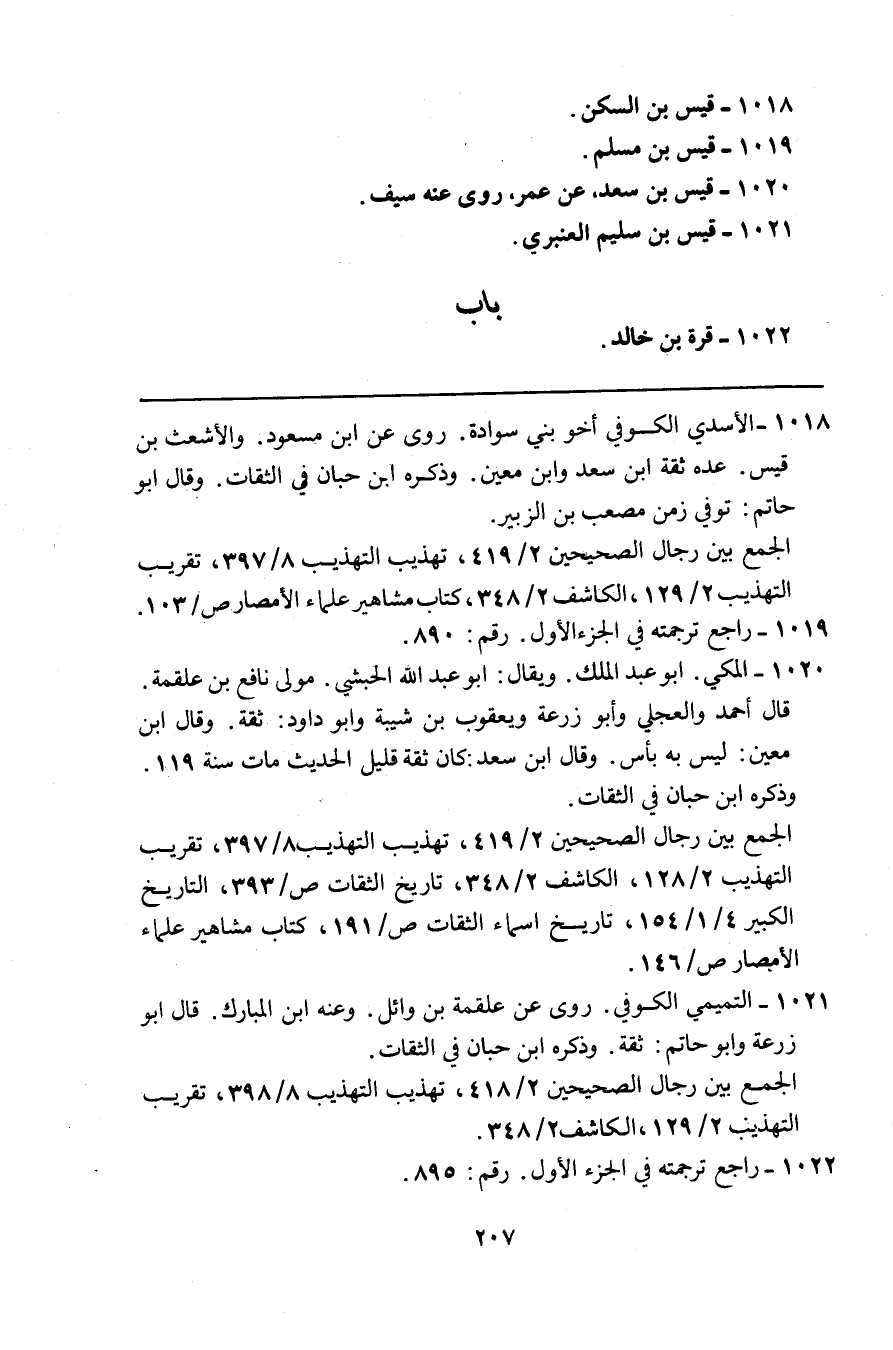 ١٠١٨ - قيس بن السكن.
١٠١٩ - قيس بن مسلم.
١٠٢٠ - قيس بن سعد، عن عمر، روى عنه سيف.
١٠٢١ - قيس بن سليم العنبري.
باب
١٠٢٢ - قرة بن خالد.
١٠١٨ - الأسدي الكوفي أخو بني سوادة. روى عن ابن مسعود. والأشعث بن
قيس. عده ثقة ابن سعد وابن معين. وذكره ابن حبان في الثقات. وقال ابو
حاتم: توفي زمن مصعب بن الزبير.
الجمع بين رجال الصحيحين ٤١٩/٢، تهذيب التهذيب ٣٩٧/٨، تقريب
التهذيب ١٢٩/٢، الكاشف ٣٤٨/٢، كتاب مشاهير علماء الأمصار ص/١٠٣.
١٠١٩ - راجع ترجمته في الجزء الأول. رقم: ٨٩٠.
١٠٢٠ - المكي. ابو عبد الملك. ويقال: ابو عبد الله الحبشي. مولى نافع بن علقمة.
قال أحمد والعجلي وأبو زرعة ويعقوب بن شيبة وابو داود: ثقة. وقال ابن
معين: ليس به بأس. وقال ابن سعد: كان ثقة قليل الحديث مات سنة ١١٩.
وذكره ابن حبان في الثقات.
الجمع بين رجال الصحيحين ٤١٩/٢، تهذيب التهذيب ٣٩٧/٨، تقريب
التهذيب ١٢٨/٢، الكاشف ٣٤٨/٢، تاريخ الثقات ص/٣٩٣، التاريخ
الكبير ١٥٤/١/٤، تاريخ اسماء الثقات ص/١٩١، كتاب مشاهير علماء
الأمصار ص/١٤٦.
١٠٢١ - التميمي الكوفي. روى عن علقمة بن وائل. وعنه ابن المبارك. قال ابو
زرعة وابو حاتم: ثقة. وذكره ابن حبان في الثقات.
الجمع بين رجال الصحيحين ٤١٨/٢، تهذيب التهذيب ٣٩٨/٨، تقريب
التهذيب ١٢٩/٢، الكاشف ٣٤٨/٢.
١٠٢٢ - راجع ترجمته في الجزء الأول. رقم: ٨٩٥.
٢٠٧